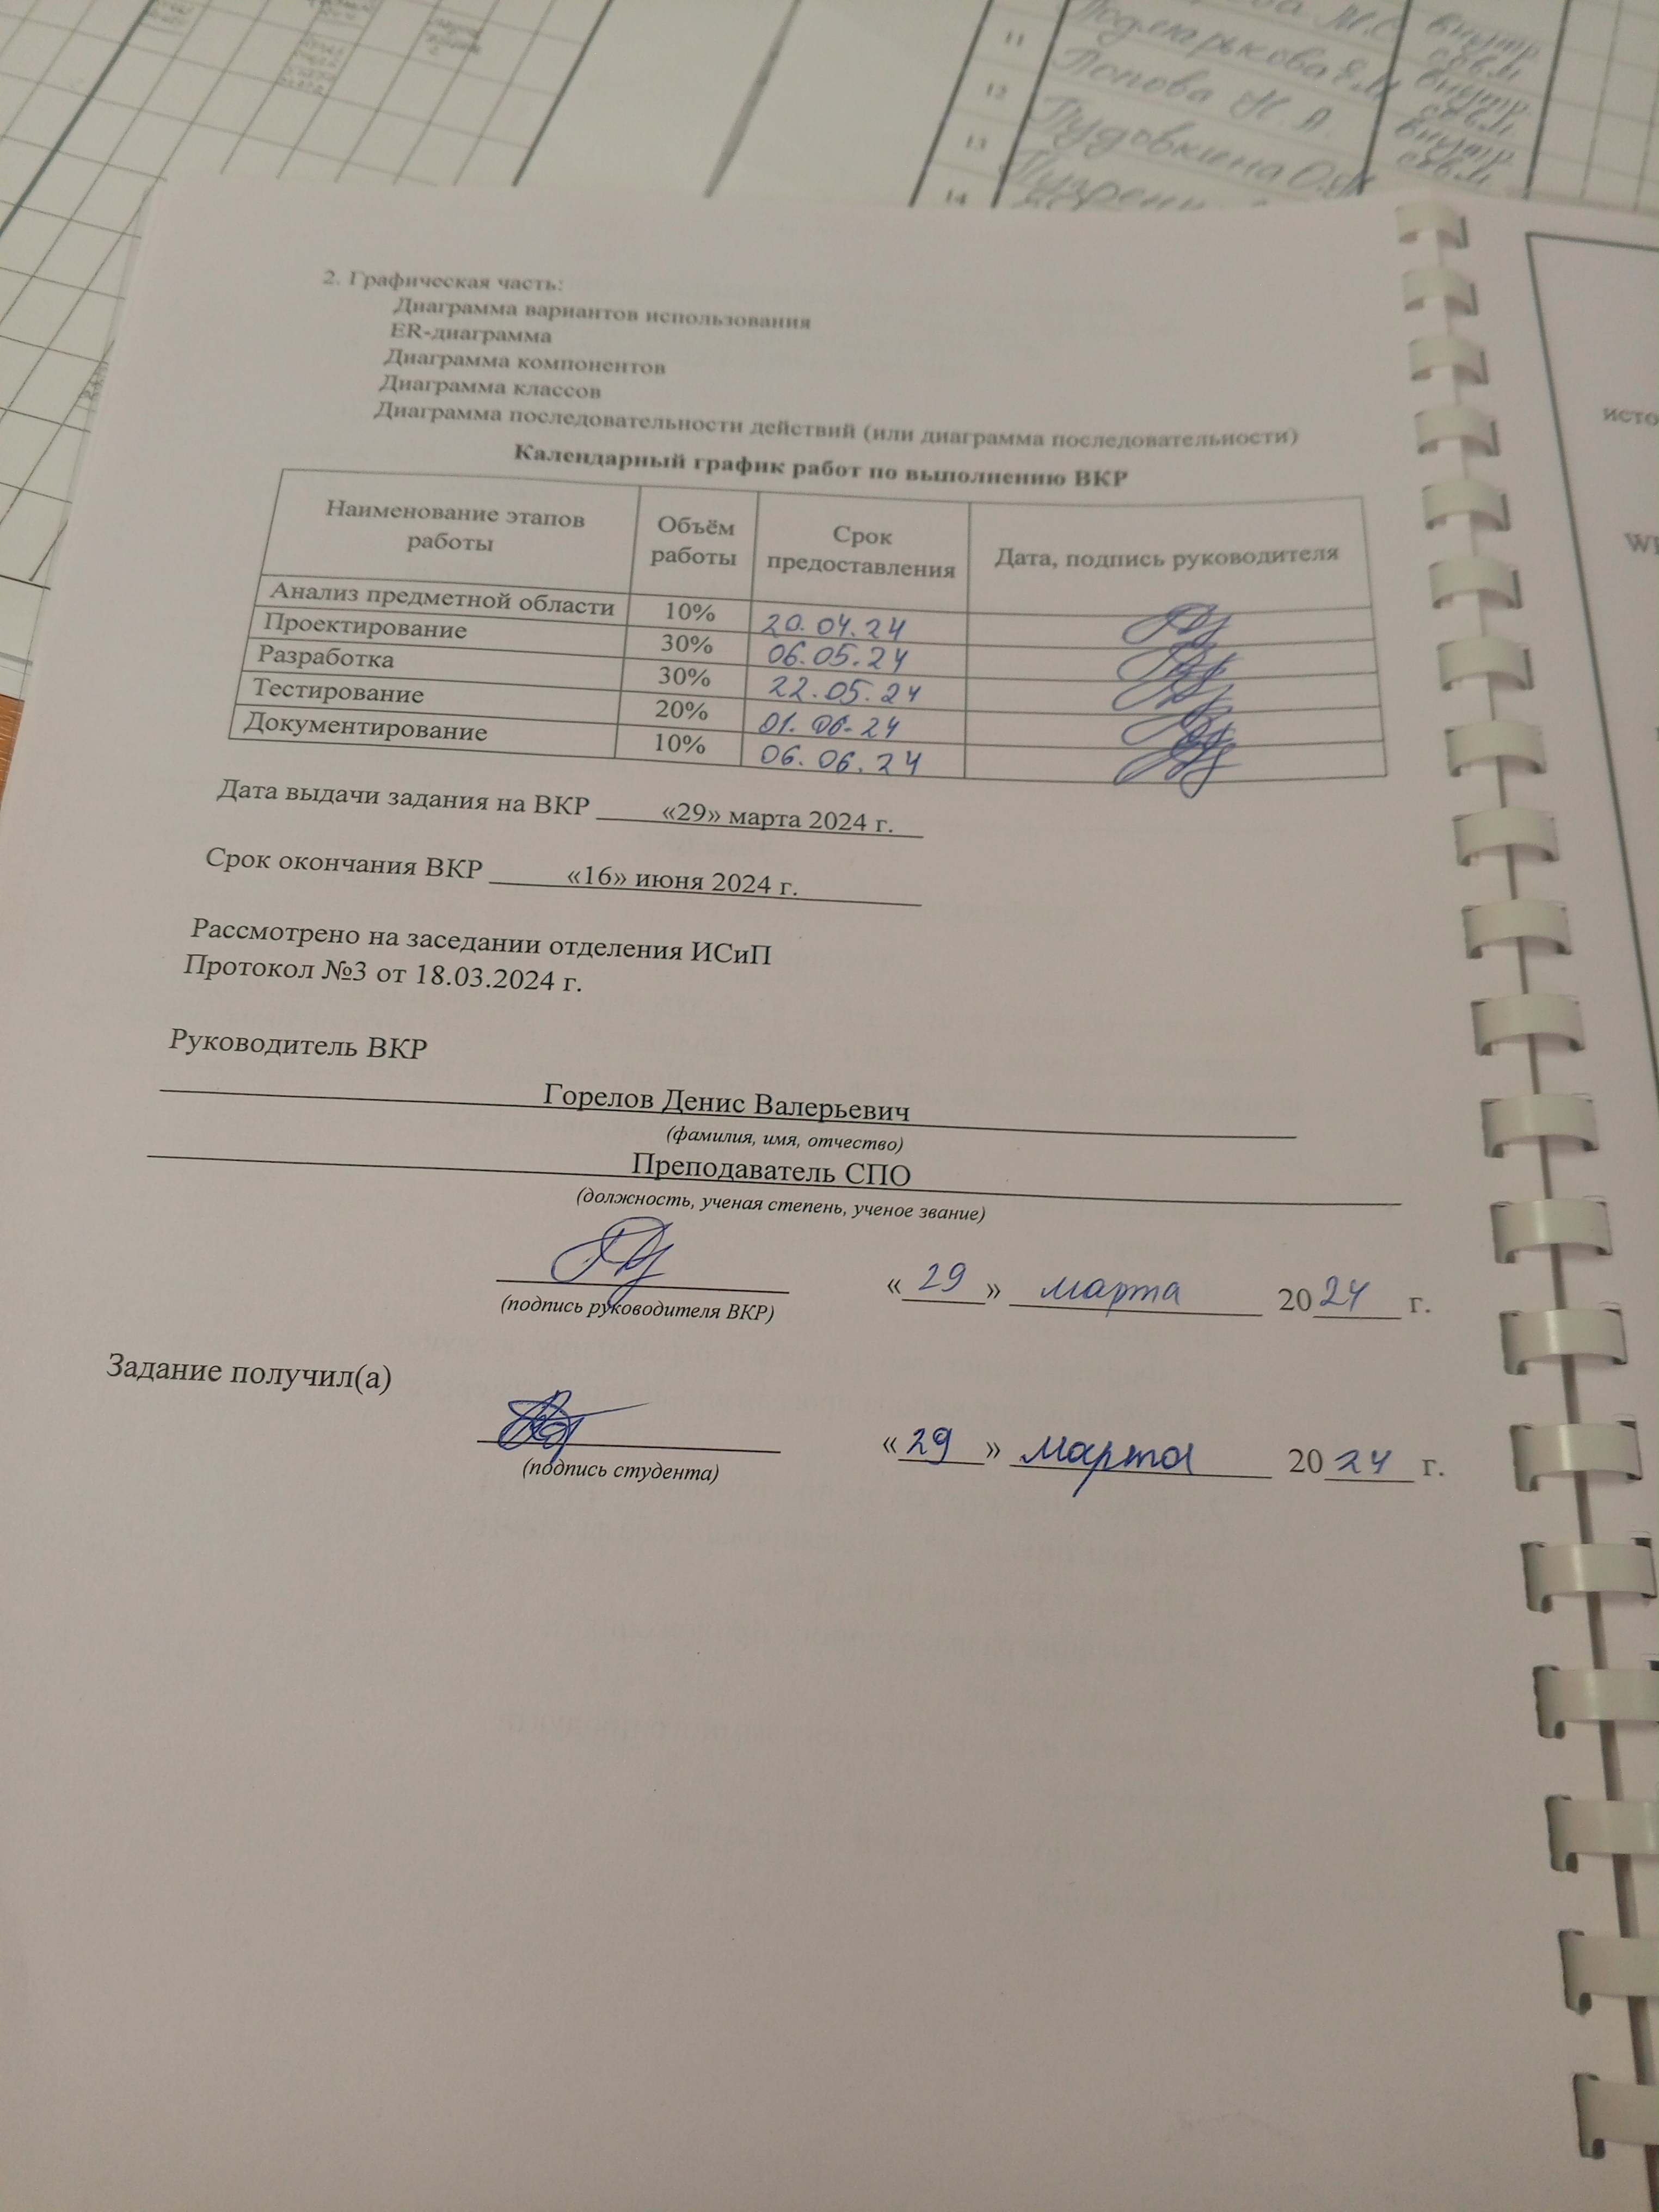 11
12
13
14
Попова Н. А.
внутр.
совм
2. Графическая часть:
Диаграмма вариантов использования
ER-диаграмма
Диаграмма компонентов
Диаграмма классов
Диаграмма последовательности действий (или диаграмма последовательности)
Календарный график работ по выполнению ВКР
Наименование этапов работы Объём работы Срок предоставления Дата, подпись руководителя
Анализ предметной области 10% 20.04.24
Проектирование 30% 06.05.24
Разработка 30% 22.05.24
Тестирование 20% 01.06.24
Документирование 10% 06.06.24
Дата выдачи задания на ВКР «29» марта 2024 г.
Срок окончания ВКР «16» июня 2024 г.
Рассмотрено на заседании отделения ИСиП
Протокол №3 от 18.03.2024 г.
Руководитель ВКР
Горелов Денис Валерьевич
(фамилия, имя, отчество)
Преподаватель СПО
(должность, ученая степень, ученое звание)
«29» марта 2024 г.
(подпись руководителя ВКР)
Задание получил(а)
«29» марта 2024 г.
(подпись студента)